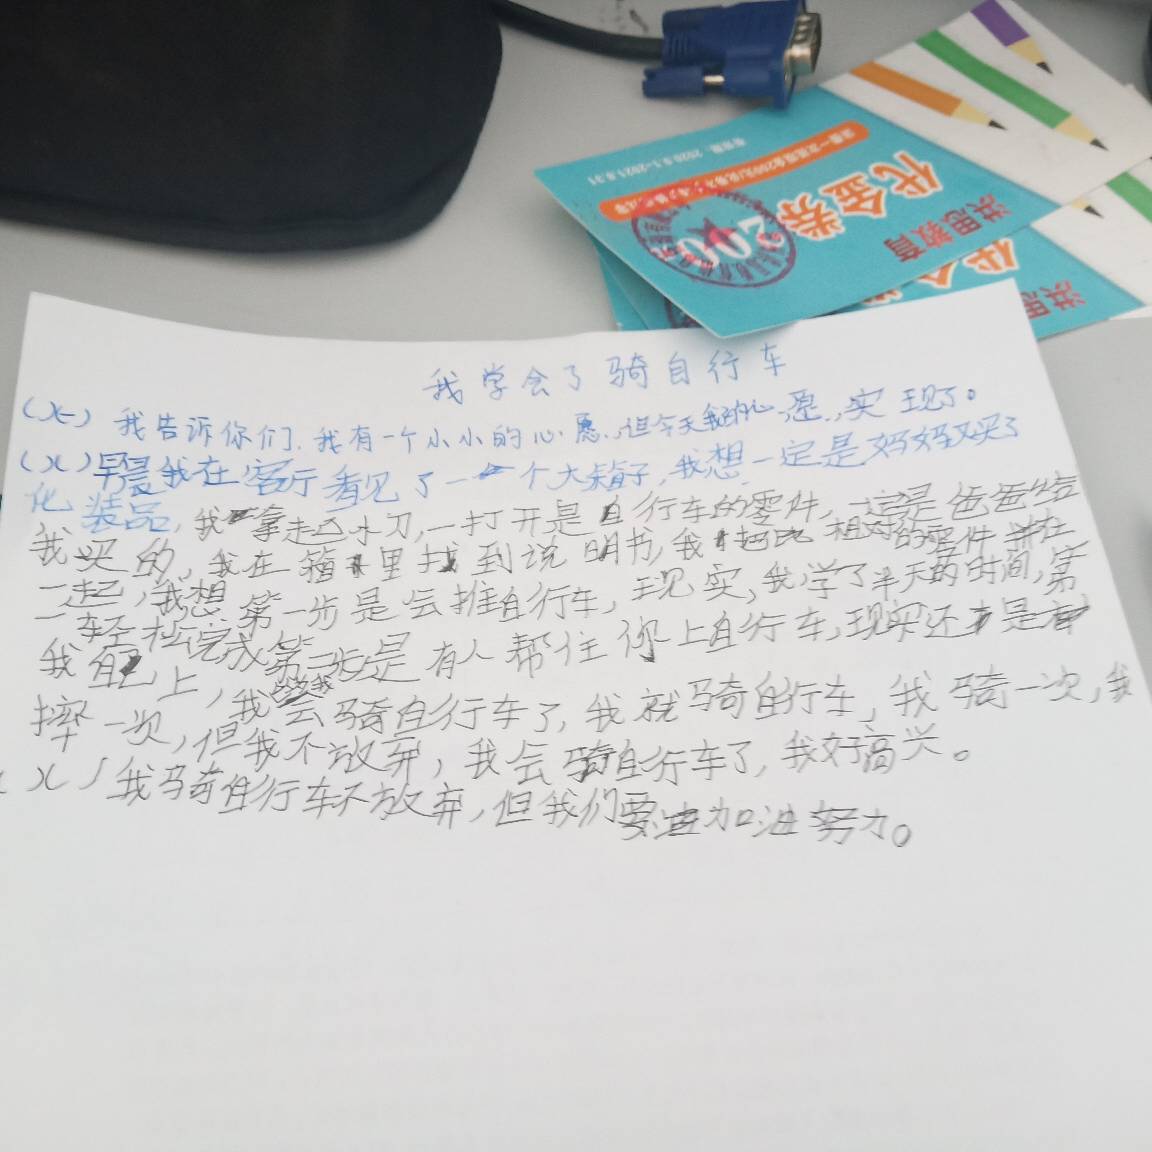 洪恩教育
代金券
200
洪恩
我学会了骑自行车
我告诉你们,我有一个小小的心愿,但今天我的心愿,实现了。
早晨我在客厅看见了一个大箱子,我想一定是妈妈又买了
化装品,我拿起小刀,一打开是自行车的零件,这是爸爸给
我买的,我在箱里找到说明书,我把相对的零件拼在
一起,我想第一步是会推自行车,现实,我学了半天的时间,第
轻松完成第二步是有人帮住你上自行车,现实还是
我自己上,我会骑自行车了,我就骑自行车,我骑一次,我
摔一次,但我不放弃,我会骑自行车了,我好高兴。
我骑自行车不放弃,但我们要加进努力。